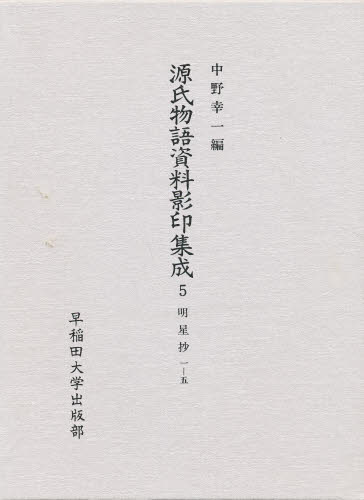 中野幸一編
源氏物語資料影印集成
5 明星抄 一―五
早稲田大学出版部